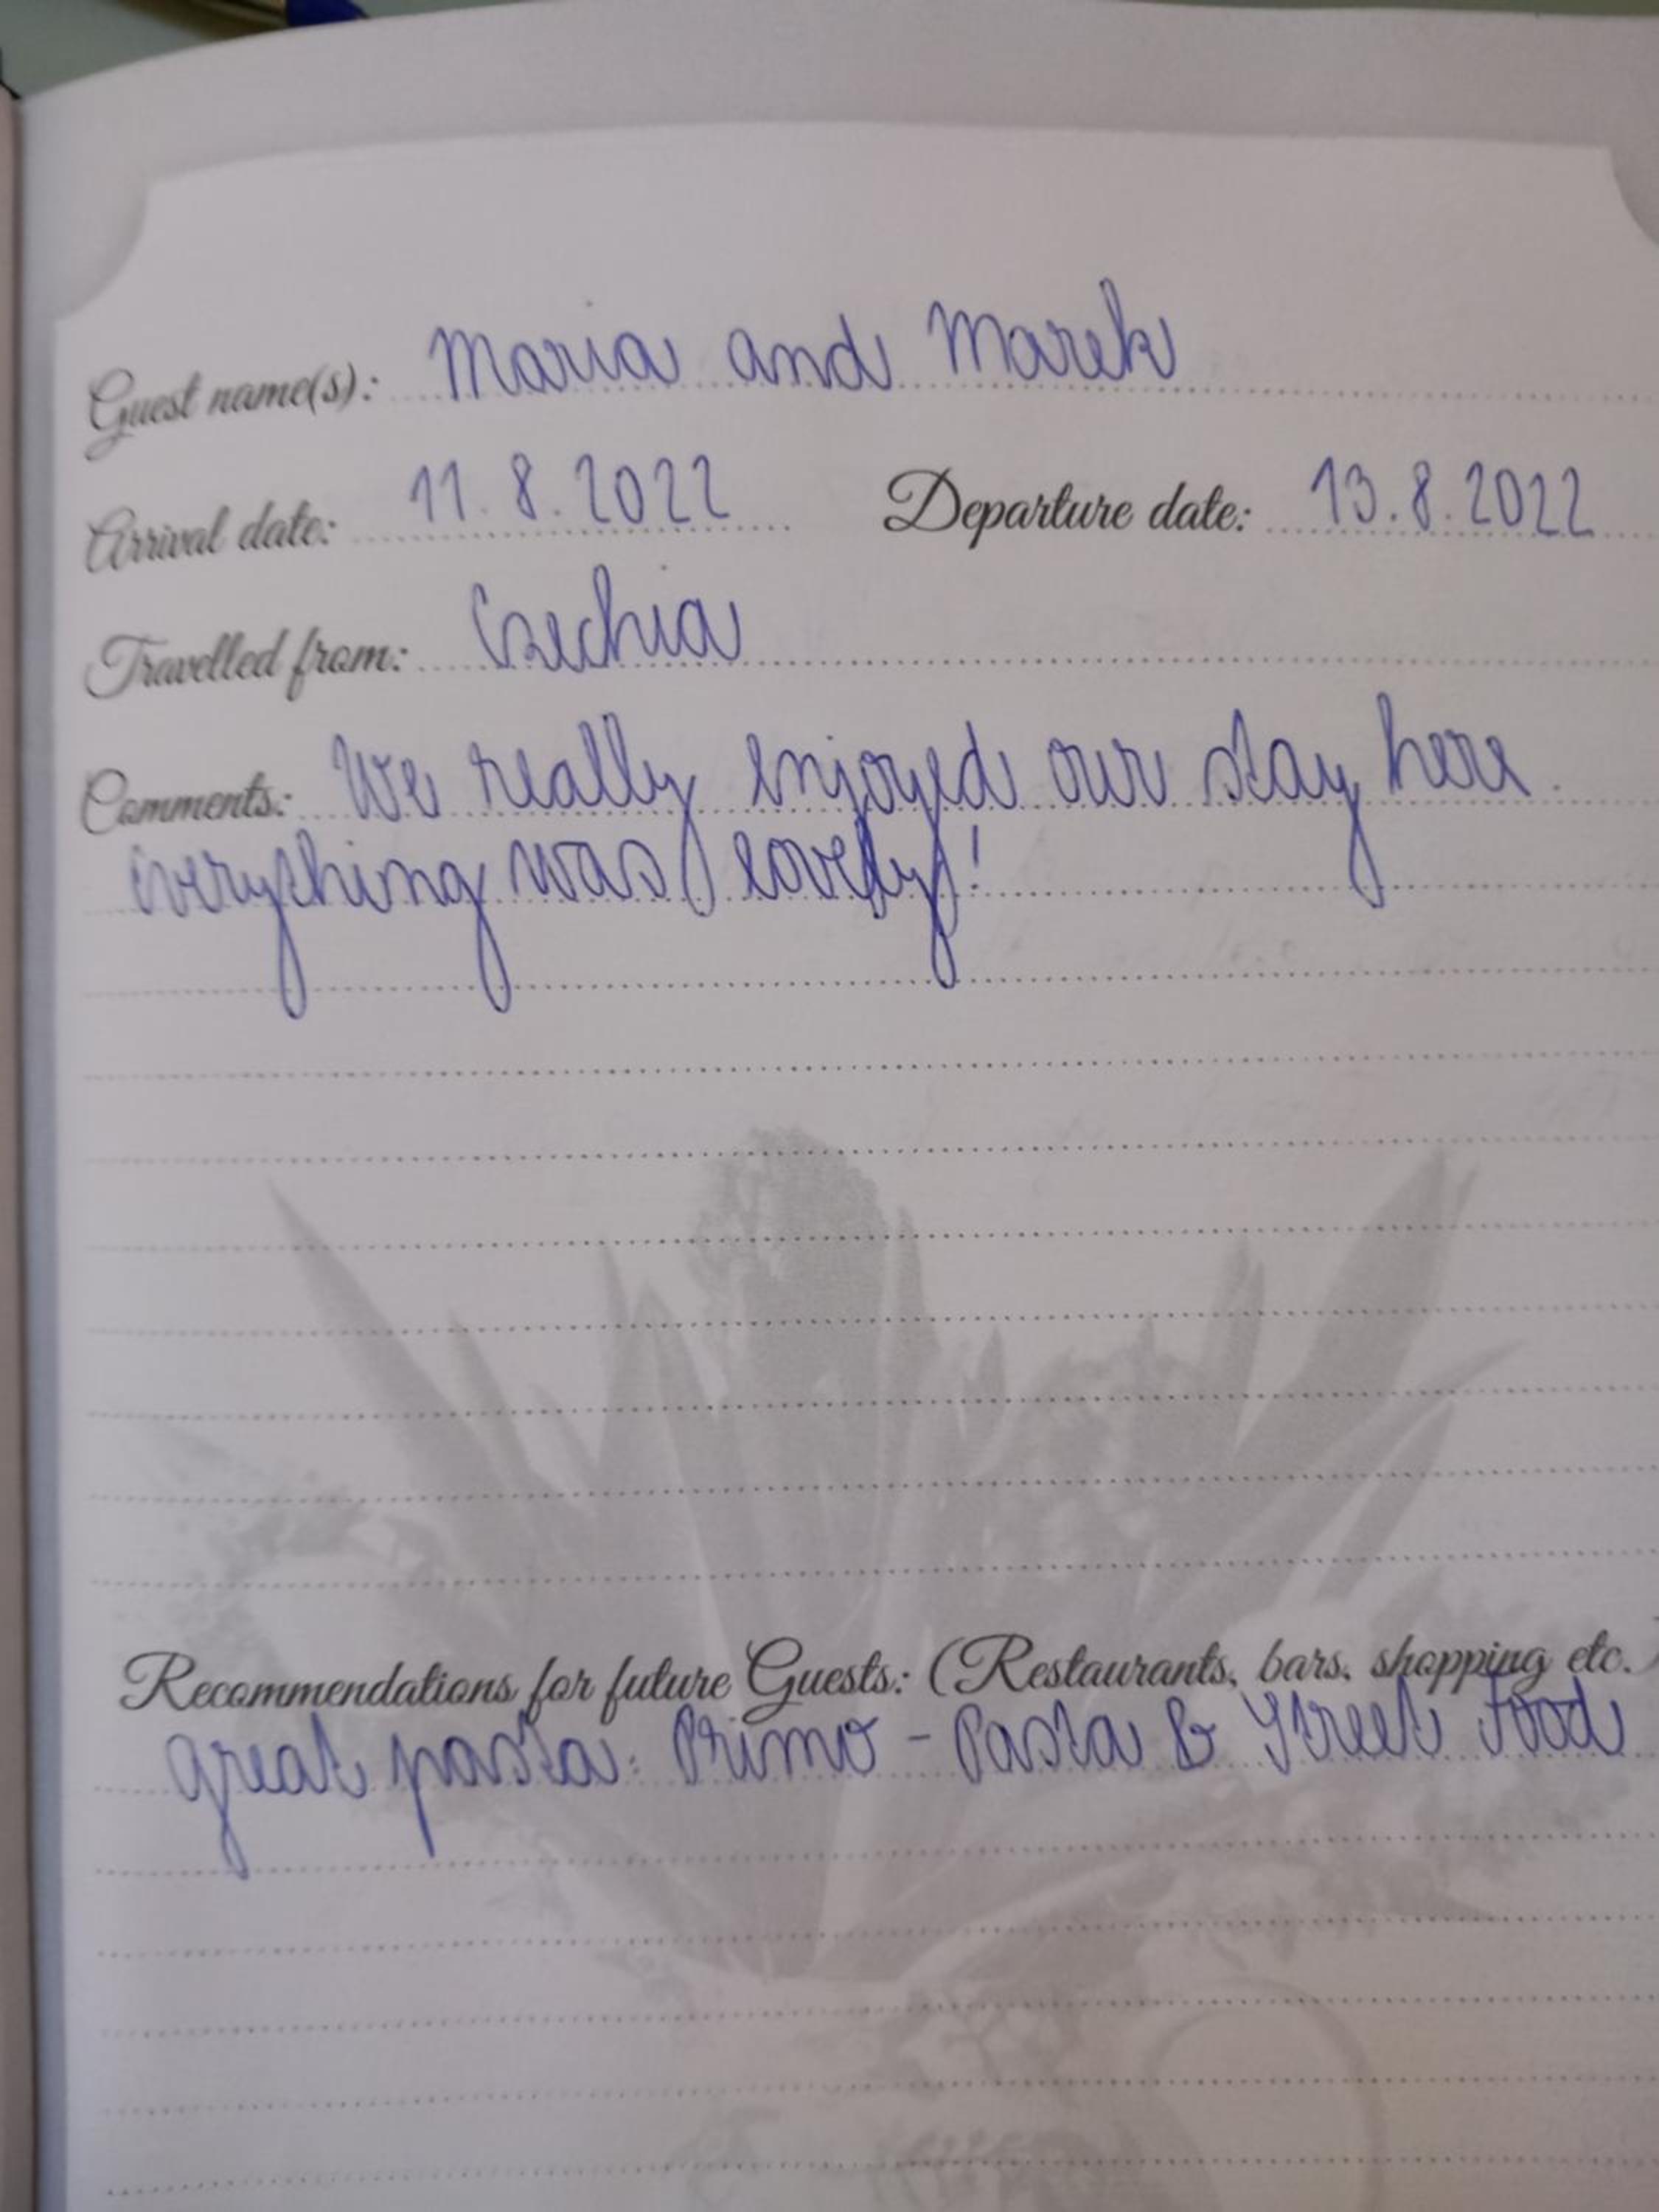 Guest name(s): Maria and Marek
Arrival date: 11.8.2022 Departure date: 13.8.2022
Travelled from: Czechia
Comments: We really enjoyed our stay here.
Everything was lovely!
Recommendations for future Guests: (Restaurants, bars, shopping etc.)
great pasta: Primo - Pasta & Street Food